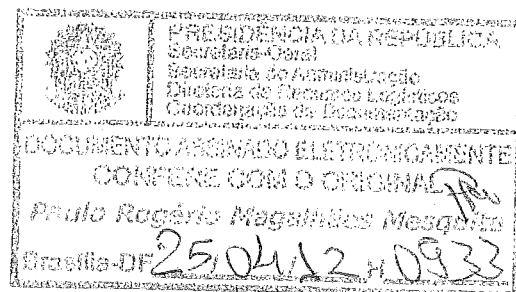 PRESIDÊNCIA DA REPÚBLICA
Secretaria-Geral
Secretaria de Administração
Diretoria de Recursos Logísticos
Coordenação de Documentação
DOCUMENTO ASSINADO ELETRONICAMENTE
CONFERE COM O ORIGINAL
Paulo Rogério Magalhães Mesquita
Brasília-DF 25/04/12 H 0933